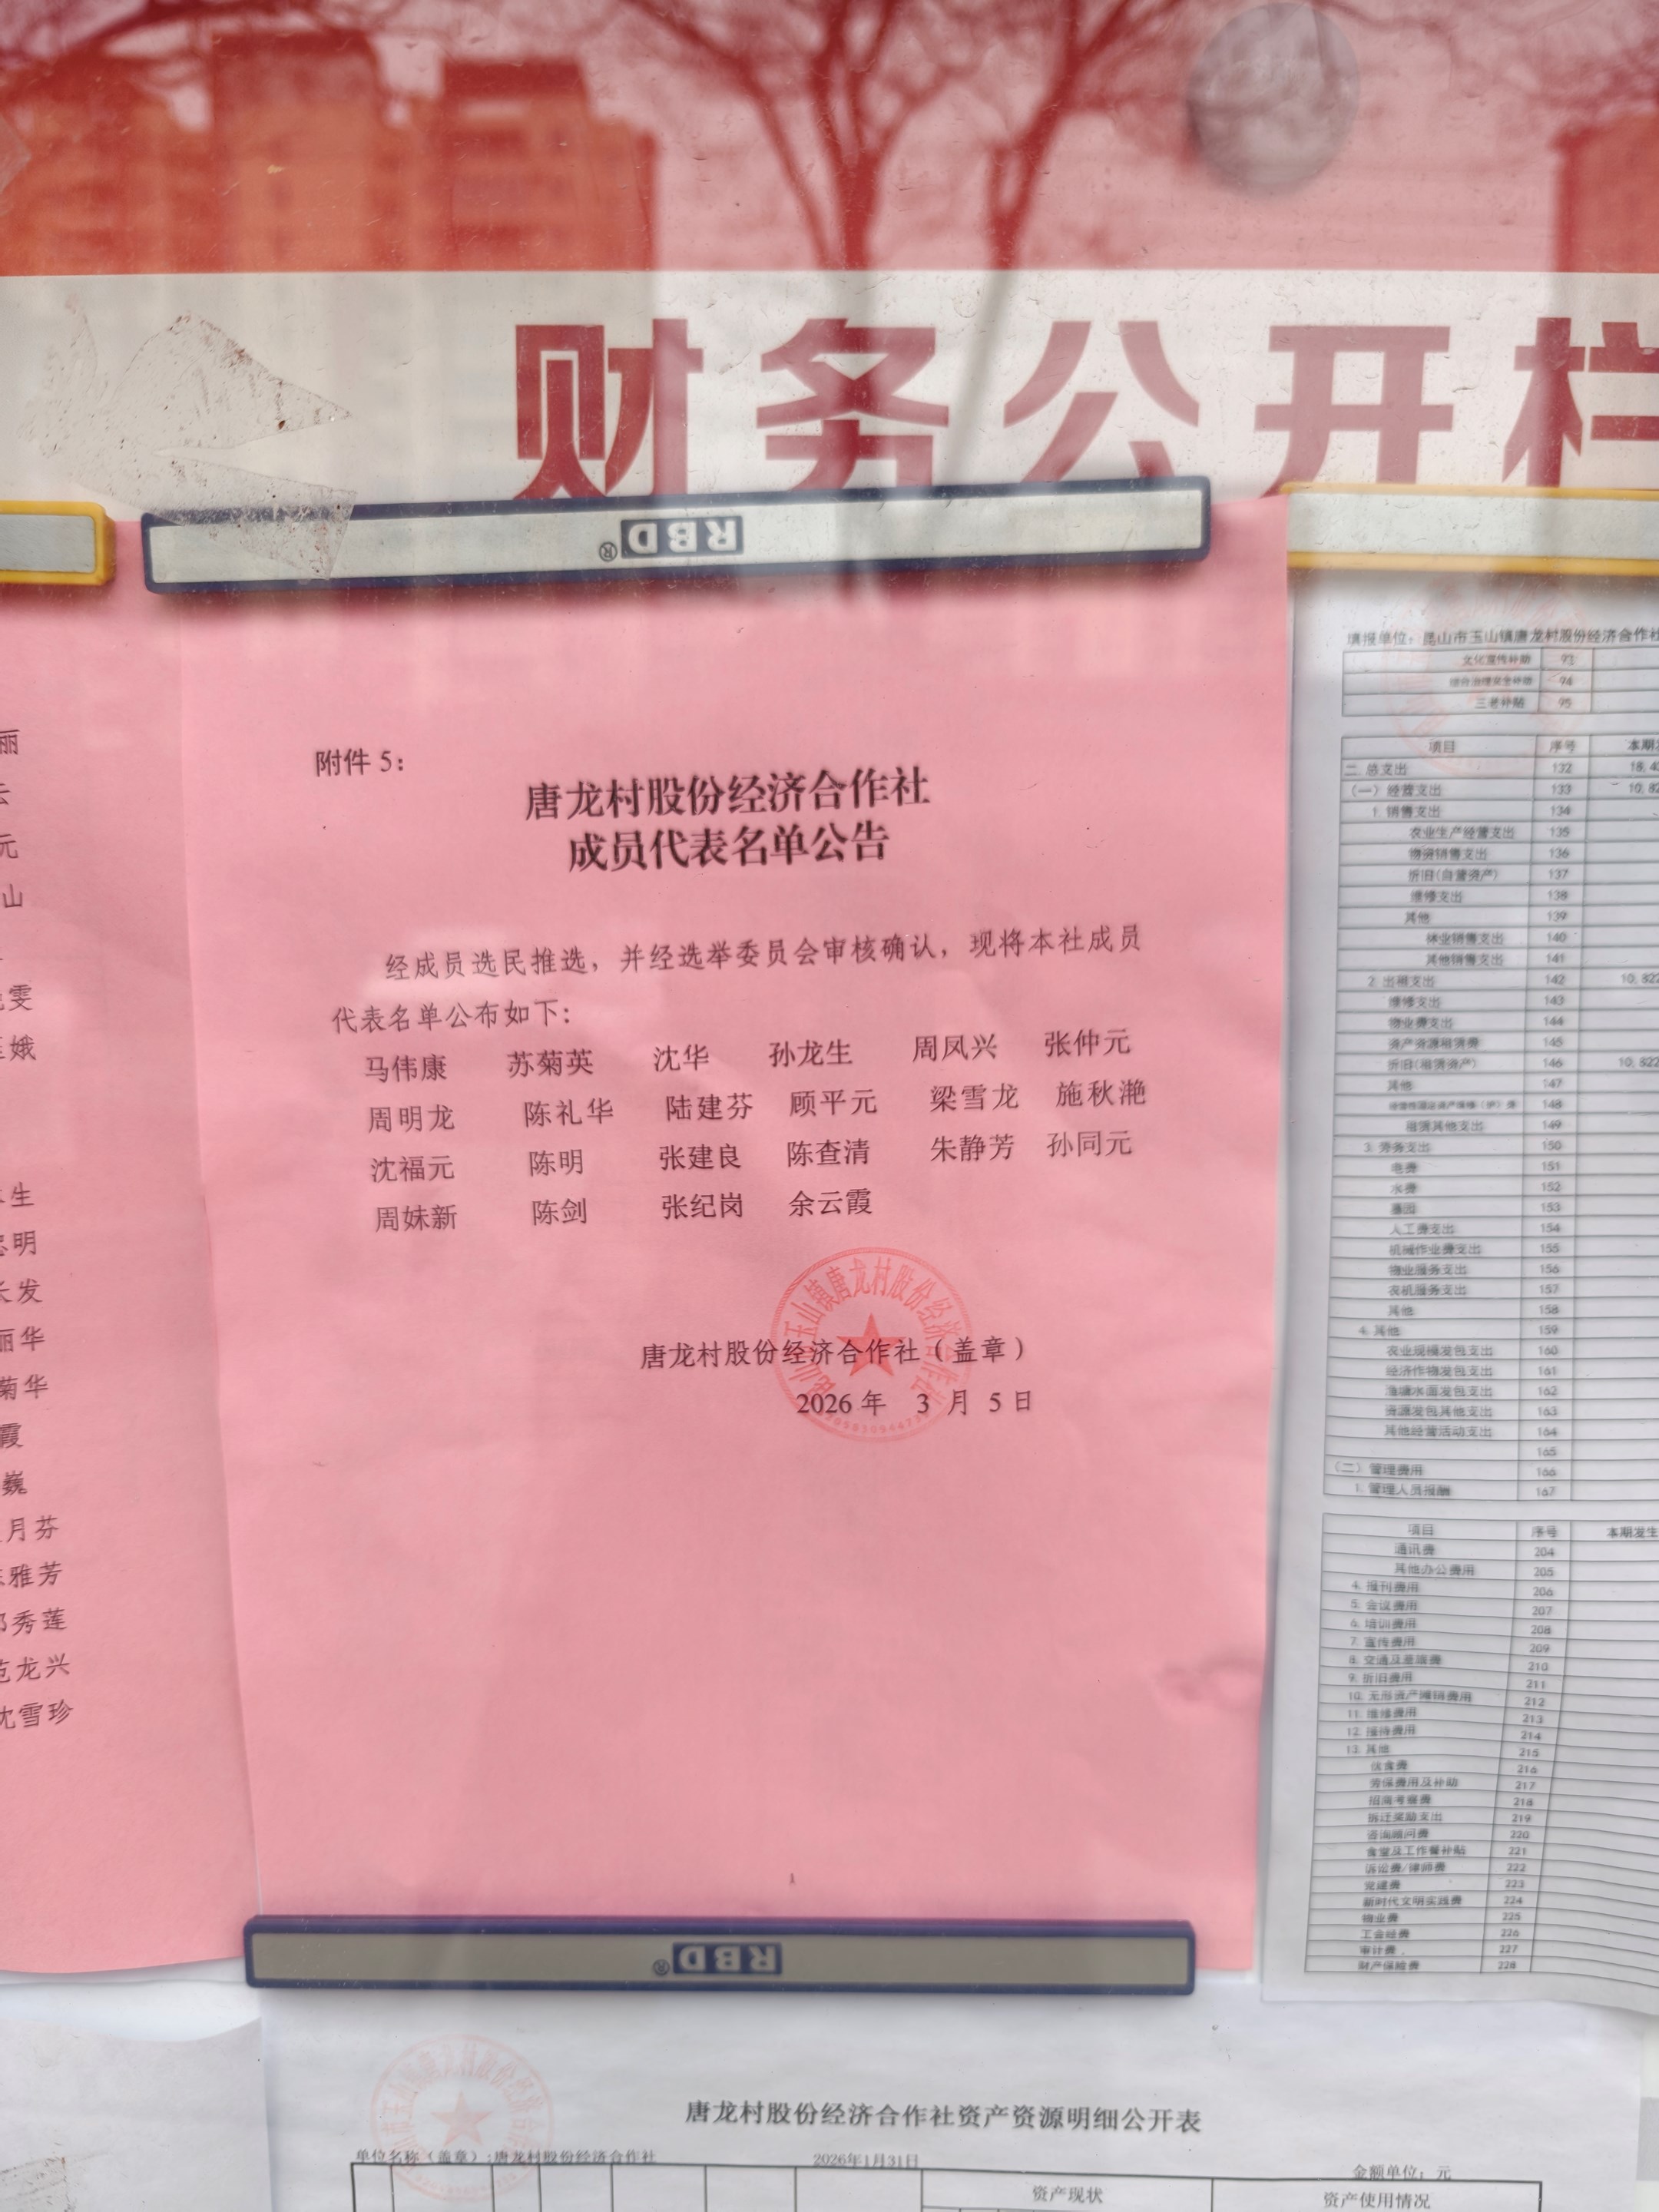 财务公开栏
RBD®
附件 5：
唐龙村股份经济合作社
成员代表名单公告
经成员选民推选，并经选举委员会审核确认，现将本社成员
代表名单公布如下：
马伟康 苏菊英 沈华 孙龙生 周凤兴 张仲元
周明龙 陈礼华 陆建芬 顾平元 梁雪龙 施秋滟
沈福元 陈明 张建良 陈查清 朱静芳 孙同元
周妹新 陈剑 张纪岗 余云霞
昆山市玉山镇唐龙村股份经济合作社
唐龙村股份经济合作社（盖章）
2026 年 3 月 5 日
1
RBD®
丽
云
元
山
雯
娥
生
明
长发
丽华
菊华
霞
巍
月芬
雅芳
秀莲
范龙兴
沈雪珍
填报单位：昆山市玉山镇唐龙村股份经济合作社
文化宣传补助 93
综合治理安全补助 94
三老补贴 95
项目 序号 本期发
二.总支出 132
（一）经营支出 133
1.销售支出 134
农业生产经营支出 135
物资销售支出 136
折旧(自营资产) 137
维修支出 138
其他 139
林业销售支出 140
其他销售支出 141
2.出租支出 142 10,822
维修支出 143
物业费支出 144
资产资源租赁费 145
折旧(租赁资产) 146 10,822
其他 147
148
租赁其他支出 149
3.劳务支出 150
电费 151
水费 152
墓园 153
人工费支出 154
机械作业费支出 155
物业服务支出 156
农机服务支出 157
其他 158
4.其他 159
农业规模发包支出 160
经济作物发包支出 161
渔塘水面发包支出 162
资源发包其他支出 163
其他经营活动支出 164
165
（二）管理费用 166
1.管理人员报酬 167
项目 序号 本期发生
通讯费 204
其他办公费用 205
4.报刊费用 206
5.会议费用 207
6.培训费用 208
7.宣传费用 209
8.交通及差旅费 210
9.折旧费用 211
10.无形资产摊销费用 212
11.维修费用 213
12.接待费用 214
13.其他 215
伙食费 216
劳保费用及补助 217
招商考察费 218
拆迁奖励支出 219
咨询顾问费 220
食堂及工作餐补贴 221
诉讼费/律师费 222
党建费 223
新时代文明实践费 224
物业费 225
工会经费 226
审计费 227
财产保险费 228
唐龙村股份经济合作社资产资源明细公开表
单位名称（盖章）:唐龙村股份经济合作社 2026年1月31日 金额单位：元
资产现状 资产使用情况